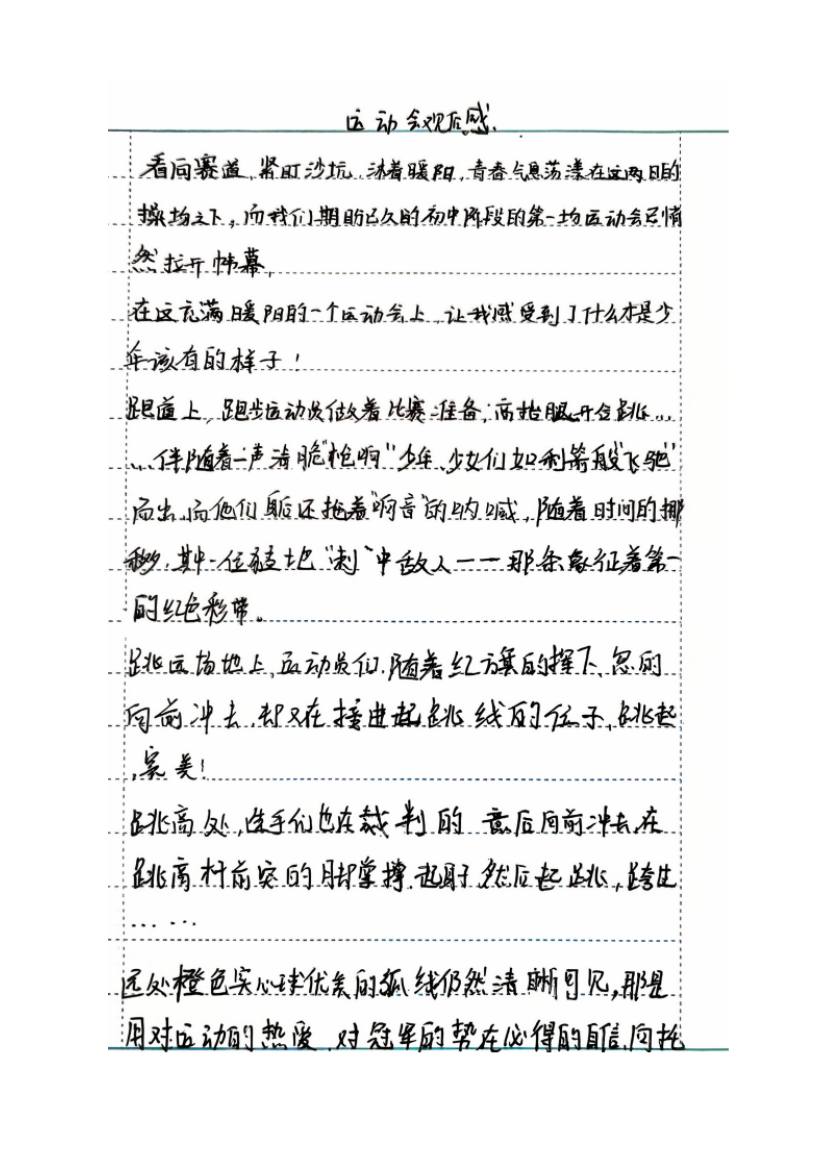 运动会观后感
看向赛道,紧盯沙坑,沐着暖阳,青春气息荡漾在这两日的
操场之下,而我们期盼已久的初中阶段的第一场运动会已悄
然拉开帏幕,
在这充满暖阳的一个运动会上,让我感受到了什么才是少
年该有的样子!
跑道上,跑步运动员做着比赛准备,高抬腿开合跳...
...伴随着一声清脆"枪响"少年、少女们如利箭般"飞驰"
而出,而他们身后还拖着"响音"的呐喊,随着时间的挪
移,其中一位猛地"刺"中敌人——那条象征着第一
的红色彩带。
跳远场地上,运动员们,随着红旗的挥下,忽的
向前冲去,却又在接进起跳线的位子,跳起
,完美!
跳高处,选手们也在裁判的 意后向前冲去,在
跳高杆前突的脚掌撑起身,然后起跳,跨过
……
远处橙色实心球优美的弧线仍然清晰可见,那是
用对运动的热爱,对冠军的势在必得的自信,向托